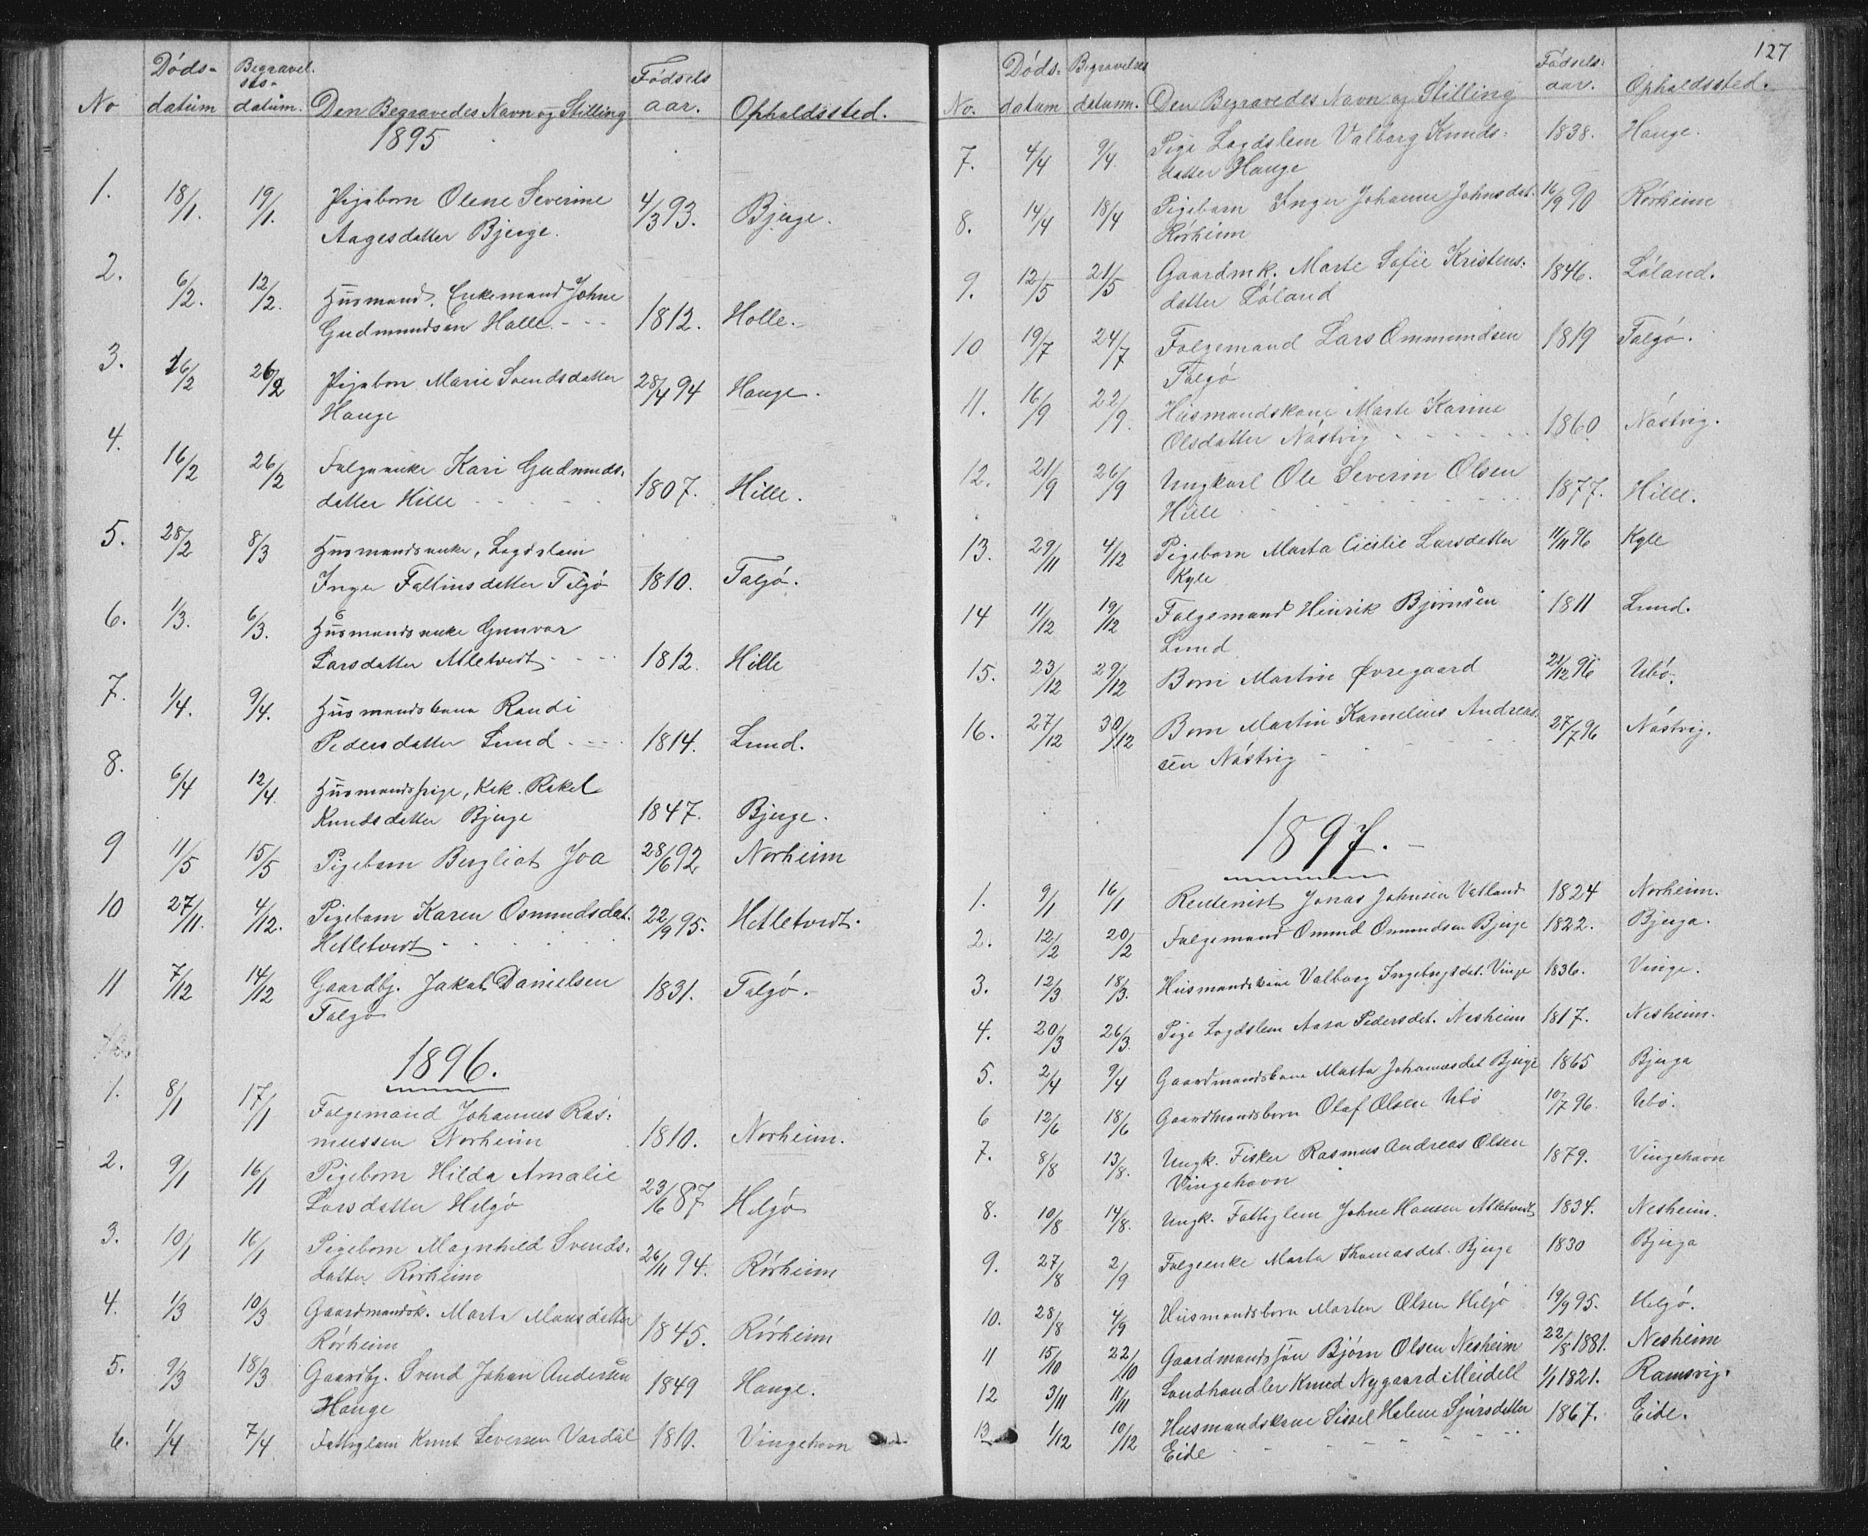 No Døds-datum Begravelses-datum. Den Begravedes Navn og Stilling Fødsels aar. Opholdssted.
1895
1. 18/1. 19/1. Pigebarn Olene Severine 4/3 93. Bjerge.
Aagesdatter Bjerge.
2. 6/2. 12/2. Husmand, Enkemand Johne
Gudmundsen Halle. - - - 1812. Halle.
3. 26/2 Pigebrn Marie Svendsdatter 28/4 94 Hauge.
Hauge
4. 16/2 26/2 Folgeenke Kari Gudmunds-
datter Hille 1807. Hille.
5. 28/2 8/3 Husmandsenke, Legdslem
Inger Faltinsdatter Talgø 1810. Talgø.
6. 1/3. 6/3. Husmandsenke Gunvor
Larsdatter Atletvedt 1812. Hille
7. 1/4. 9/4. Husmandskone Randi
Pedersdatter Lund 1814. Lund.
8. 6/4 12/4. Husmandspige, Kak. Rakel
Knudsdatter Bjerge 1847. Bjerge.
9 11/5 15/5 Pigebarn Bergliot Joa 28/6 92 Norheim
10 27/11. 4/12. Pigebarn Karen Osmundsdat. 22/9 95. Hetletvedt.
Hetletvedt
11 7/12 14/12 Gaardbr. Jakob Danielsen 1831. Talgø.
Talgø
1896.
1. 8/1 17/1 Folgemand Johannes Ras-
mussen Norheim 1810. Norheim.
2. 9/1 16/1 Pigebarn Hilda Amalie
Larsdatter Helgø 23/6 87 Helgø
3. 10/1 16/1 Pigebarn Magnhild Svends- 26/11 94. Rørheim
datter Rørheim
4. 1/3 10/3 Gaardmandsk. Marta Monsdatter
Rørheim 1845. Rørheim
5. 9/3 18/3 Gaardbr. Svend Johan Andersen 1849 Hauge.
Hauge
6. 1/4 7/4 Fattiglem Knut Seversen Vardal 1810. Vingehavn
127
No. Døds-datum Begravelses datum. Den Begravedes Navn og Stilling Fødsels-aar. Opholdssted.
7. 4/4 9/4. Pige Legdslem Valborg Knuds- 1838. Hauge.
datter Hauge
8. 14/4 18/4 Pigebarn Inger Johanne Johnsdat. 16/9 90 Rørheim
Rørheim
9. 12/5 21/5 Gaardmk. Marte Sofie Kristens- 1846. Løland.
datter Løland
10 19/7 24/7 Folgemand Lars Ommundsen 1819 Talgø.
Talgø
11. 16/9 22/9. Husmandskone Marte Karine
Olsdatter Nástvig 1860. Nástvig.
12. 21/9 26/9 Ungkarl Ole Severin Olsen
Hille 1877. Hille.
13. 29/11 4/12 Pigebarn Marta Cicilie Larsdatter 11/11 96 Kyle
Kyle
14 11/12 19/12 Folgemand Henrik Bjørnsen 1811 Lund.
Lund
15. 23/12 29/12 Barn Martin Øvregaard 21/12 96 Ubø.
16. 27/12 30/12 Barn Martin Kornelius Andreas-
sen Nástvig 27/7 96 Nástvig.
1897.
1. 9/1 16/1 Rentenist Jonas Johnsen Vatland 1824 Norheim.
2. 12/2 20/2 Folgemand Omund Omundsen Bjerge 1822. Bjerga.
3. 12/3 18/3. Husmandskone Valborg Ingebrigtsdet. Vinge 1836. Vinge.
4. 20/3 26/3. Pige Legdslem Aasa Pedersdet. Nesheim 1817. Nesheim.
5. 2/4 9/4 Gaardmandskone Marta Johannesdet Bjerge 1865 Bjerga
6 12/6 18/6 Gaardmandsbarn Olaf Olsen Ubø 10/7 96. Ubø.
7. 8/8 13/8. Ungk. Fisker Rasmus Andreas Olsen 1879. Vingehavn
Vingehavn
8. 10/8 14/8. Ungk. Fattiglem Johne Hansen Atletvedt 1834. Nesheim.
9. 27/8 2/9 Folgeenke Marta Thomasdet. Bjerge 1830 Bjerga
10. 28/8 4/9 Husmandsbarn Morten Olsen Helgø 19/9 95. Helgø.
11 15/10 22/10 Gaardmandssøn Bjørn Olsen Nesheim 22/8 1881. Nesheim
12 3/11 11/11 Landhandler Knud Nygaard Meidell 1/1 1821. Ramsvig.
13 1/12 10/12 Husmandskone Sissel Helene Sjursdatter 1867. Eide.
Eide